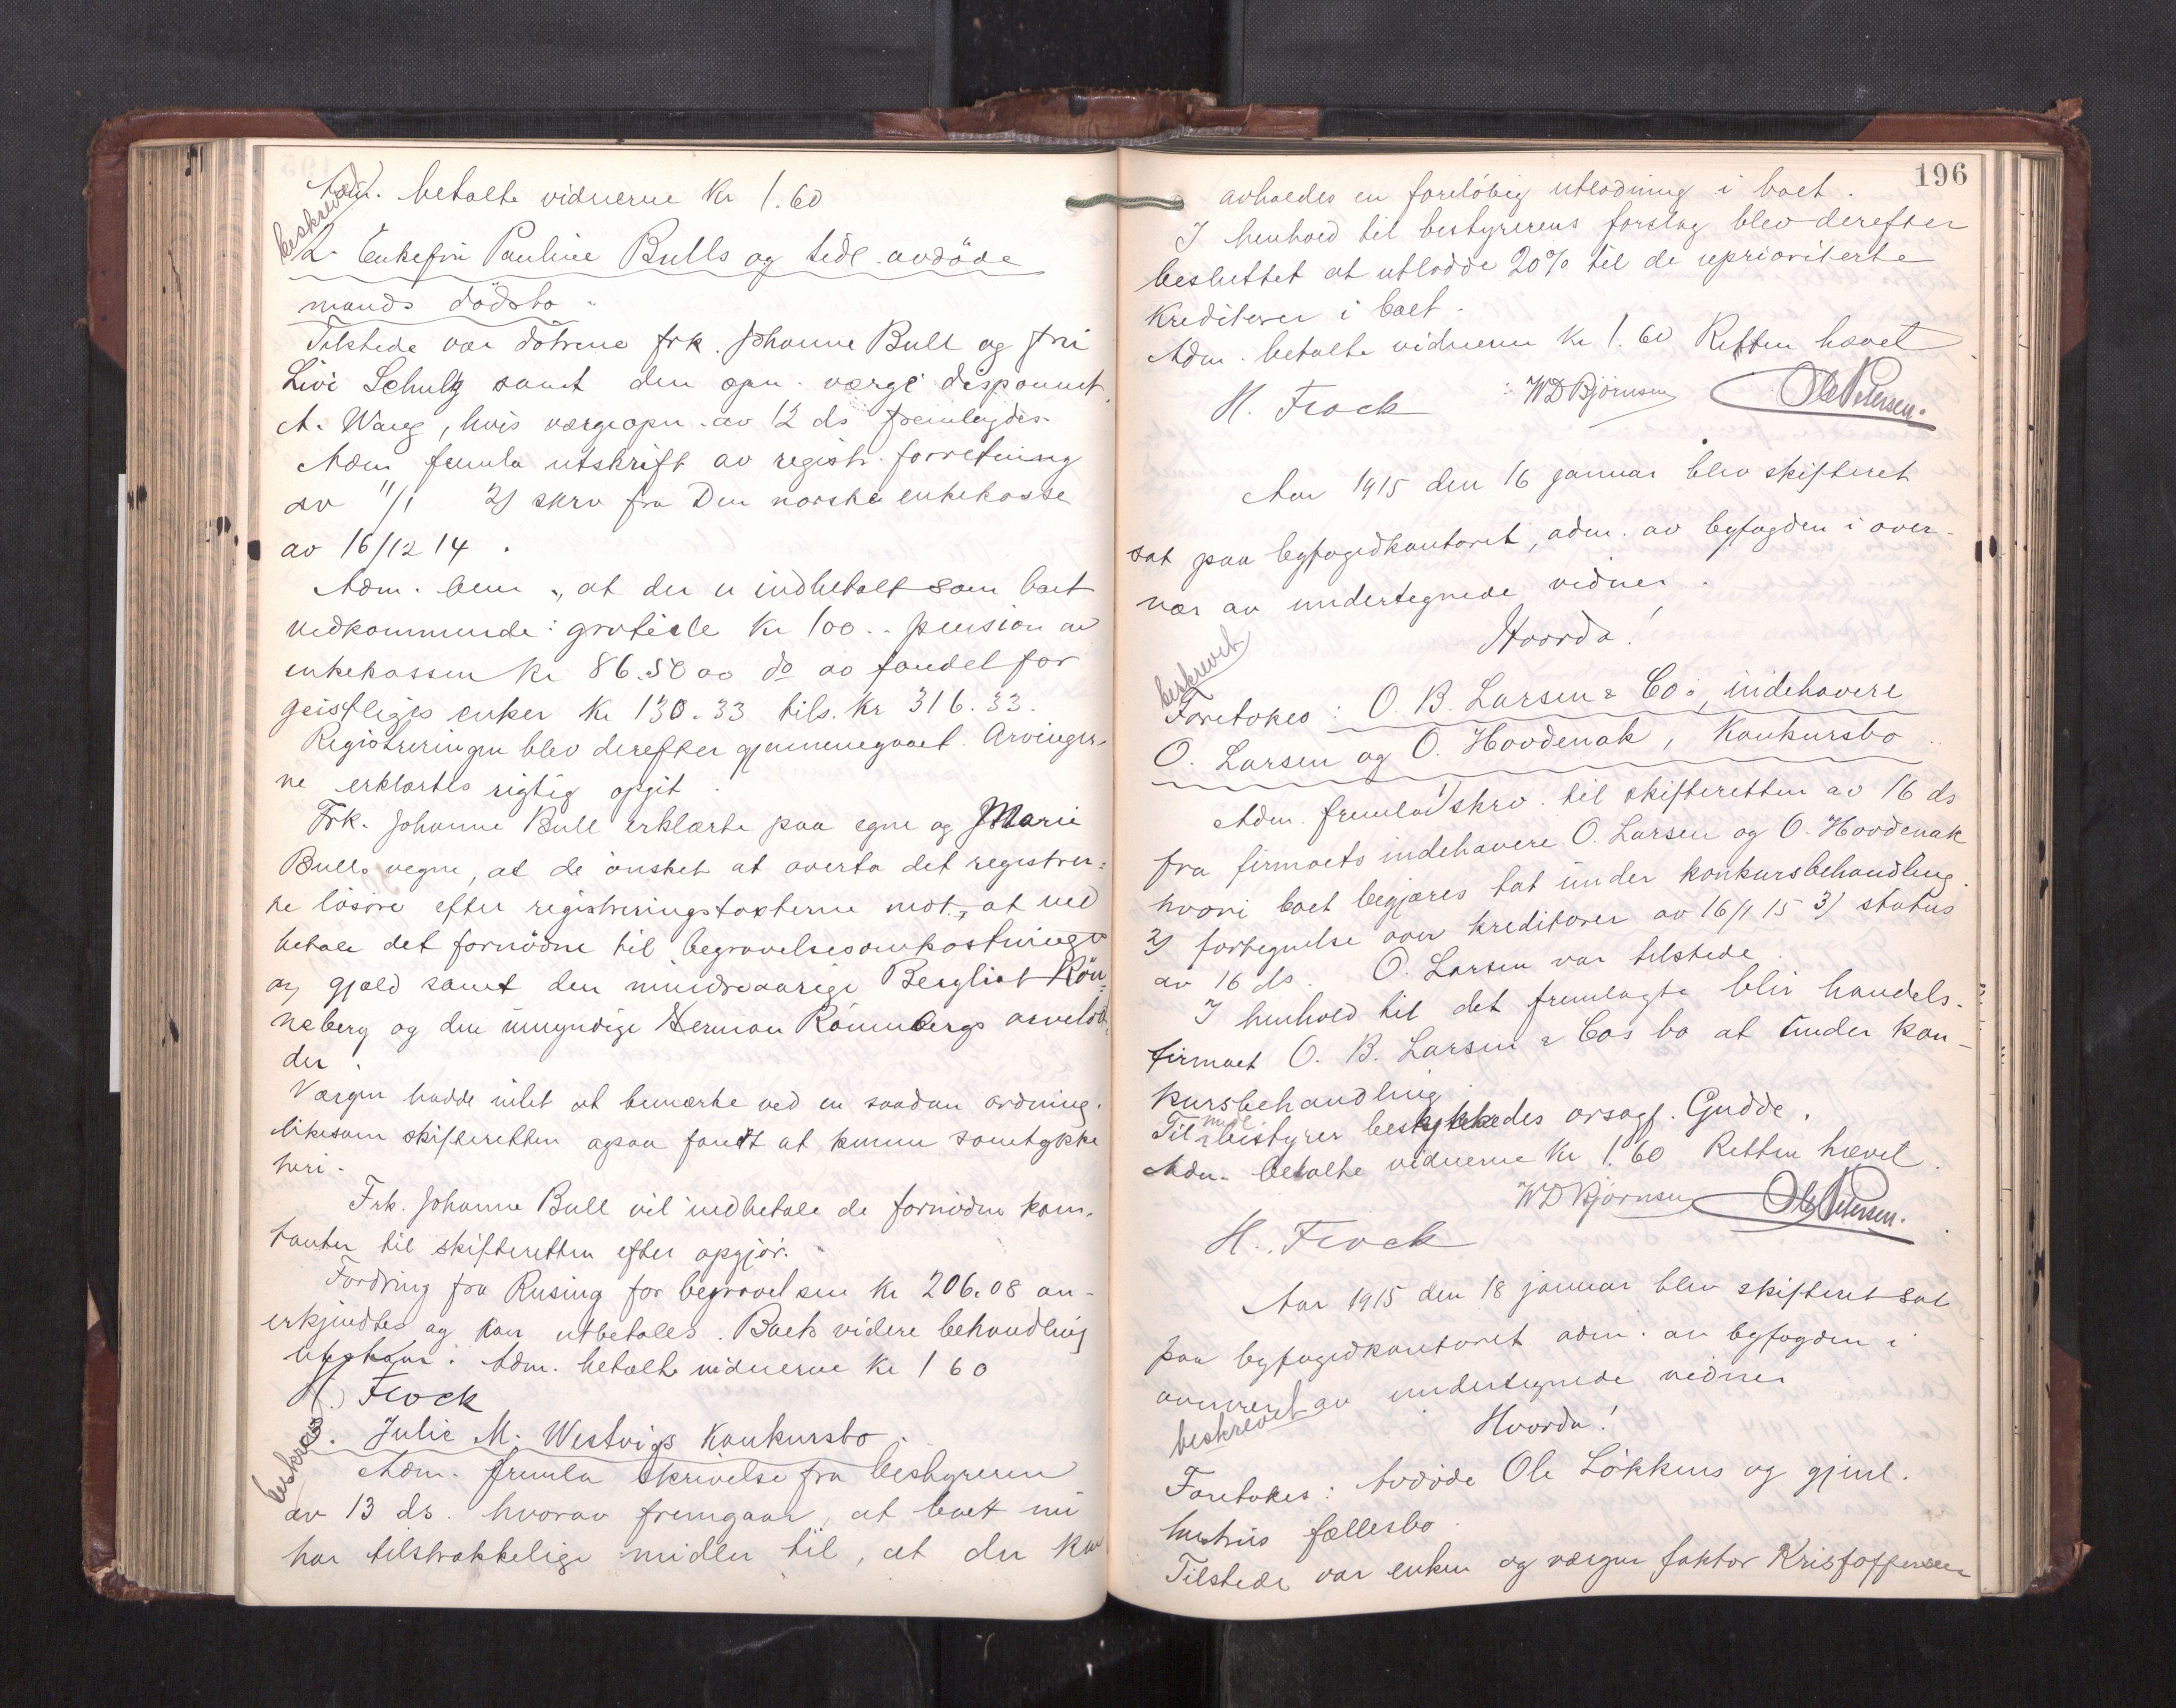 Adm. betalte vidnerne Kr 1.60
beskrevet
2. Enkefru Pauline Bulls og tidl. avdöde
mands dödsbo.
Tilstede var dötrene frk. Johanne Bull og fru
Livi Schultz samt den opn. værge disponent
A. Wang, hvis værgeopn. av 12 ds fremlagdes.
Adm fremla utskrift av registr. forretning
av 11/1 2) skrv fra Den norske enkekasse
av 16/12 14.
Adm. bem., at der er indbetalt som boet
vedkommende: gratiale Kr 100.. pension av
enkekassen Kr 86.50 og do av fondet for
geistliges enker Kr 130.33 tils. Kr 316.33.
Registreringen blev derefter gjennemgaaet. Arvinger-
ne erklærtes rigtig opgit.
Frk. Johanne Bull erklærte paa egne og Marie
Bulls vegne, at de önsket at overta det registrer=
te lösöre efter registreringstaxterne mot, at ind
betale det fornödne til begravelsesomkostninger
og gjæld samt den mindreaarige Bergliot Rön=
neberg og den umyndige Herman Rönnebergs arvelod=
der.
Værgen hadde intet at bemerke ved en saadan ordning.
likesom skifteretten ogsaa fandt at kunne samtykke
heri.
Frk. Johanne Bull vil indbetale de fornödne kon-
tanter til skifteretten efter opgjör.
Fordring fra Rusing for begravelsen Kr 206.08 an-
erkjendtes og kan utbetales. Boets videre behandling
utstaar. Adm. betalte vidnerne Kr 1 60
H. Frock
beskrevet
3. Julie M. Westvigs Konkursbo.
Adm. fremla skrivelse fra bestyreren
av 13 ds. hvorav fremgaar, at boet nu
har tilstrækkelige midler til, at der kan
196
avholdes en foreløbig utlodning i boet.
I henhold til bestyrerens forslag blev derefter
besluttet at utlodde 20% til de uprioriterte
kreditorer i boet.
Adm. betalte vidnerne Kr 1.60 Retten hævet
H. Frock WDBjörnsen Ole Petersen.
Aar 1915 den 16 januar blev skifteret
sat paa byfogedkontoret, adm. av byfogden i over-
vær av undertegnede vidner.
Hvorda!
beskrevet
Foretokes: O. B. Larsen & Co., indehavere
O. Larsen og O. Hovdenak, Konkursbo
Adm. fremla 1) skrv. til skifteretten av 16 ds
fra firmaets indehavere O. Larsen og O. Hovdenak
hvori boet begjæres tat under konkursbehandling.
2) fortegnelse over kreditorer av 16/1 15 3) status
av 16 ds. O. Larsen var tilstede.
I henhold til det fremlagte blir handels-
firmaet O. B. Larsen & Cos bo at under kon-
kursbehandling.
Til midl. bestyrer beskikkedes orsagf. Gudde.
Adm. betalte vidnerne Kr 1.60 Retten hævet.
WDBjörnsen Ole Petersen.
H. Frock
Aar 1915 den 18 januar blev skifteret sat
paa byfogedkontoret adm. av byfogden i
overværet av undertegnede vidner
Hvorda!
beskrevet
Foretokes: Avdøde Ole Løkkens og gjenl.
hustrus fællesbo.
Tilstede var enken og værgen faktor Kristoffersen